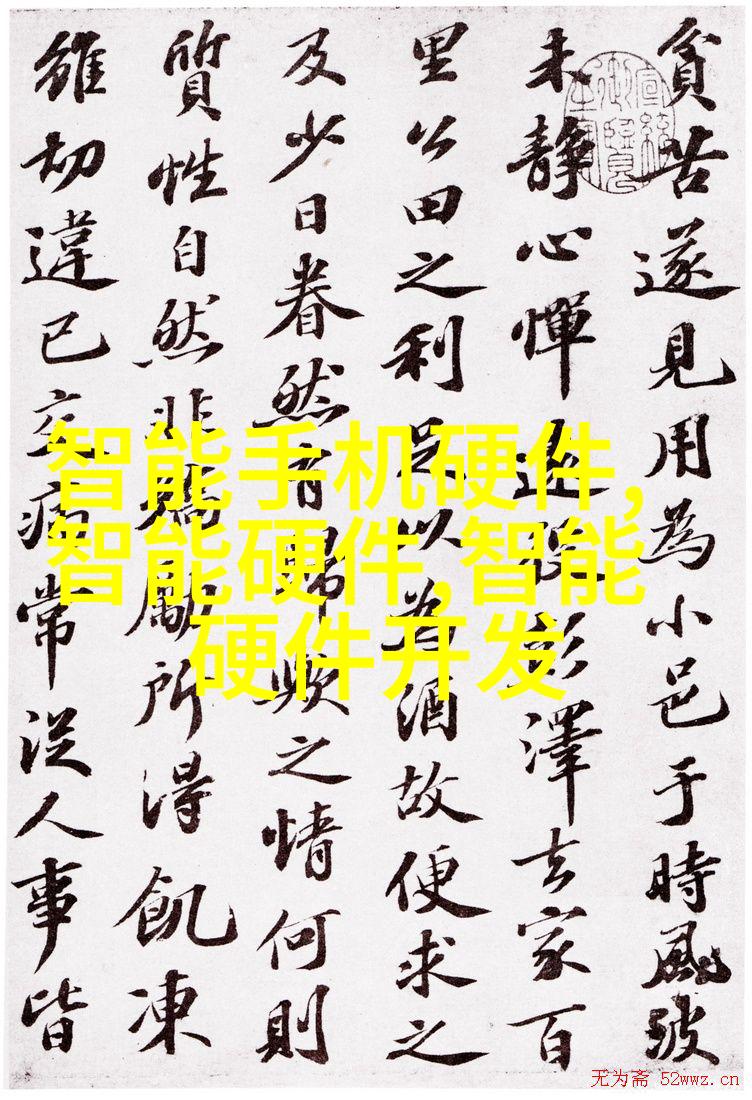 貧苦遂見用為小邑于時風波
未靜心憚遠役彭澤去家百
里公田之利足以為酒故便求之
及少日眷然有歸歟之情何則
質性自然非矯勵所得飢凍
雖切違已交病常從人事皆
智能手机硬件,
智能硬件,智能
硬件开发
无为斋 52wwz.cn